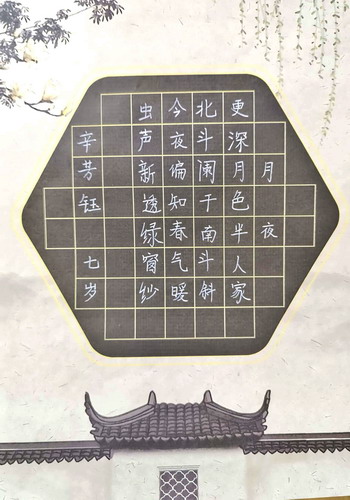 月夜
更深月色半人家
北斗阑干南斗斜
今夜偏知春气暖
虫声新透绿窗纱
辛芳钰 七岁